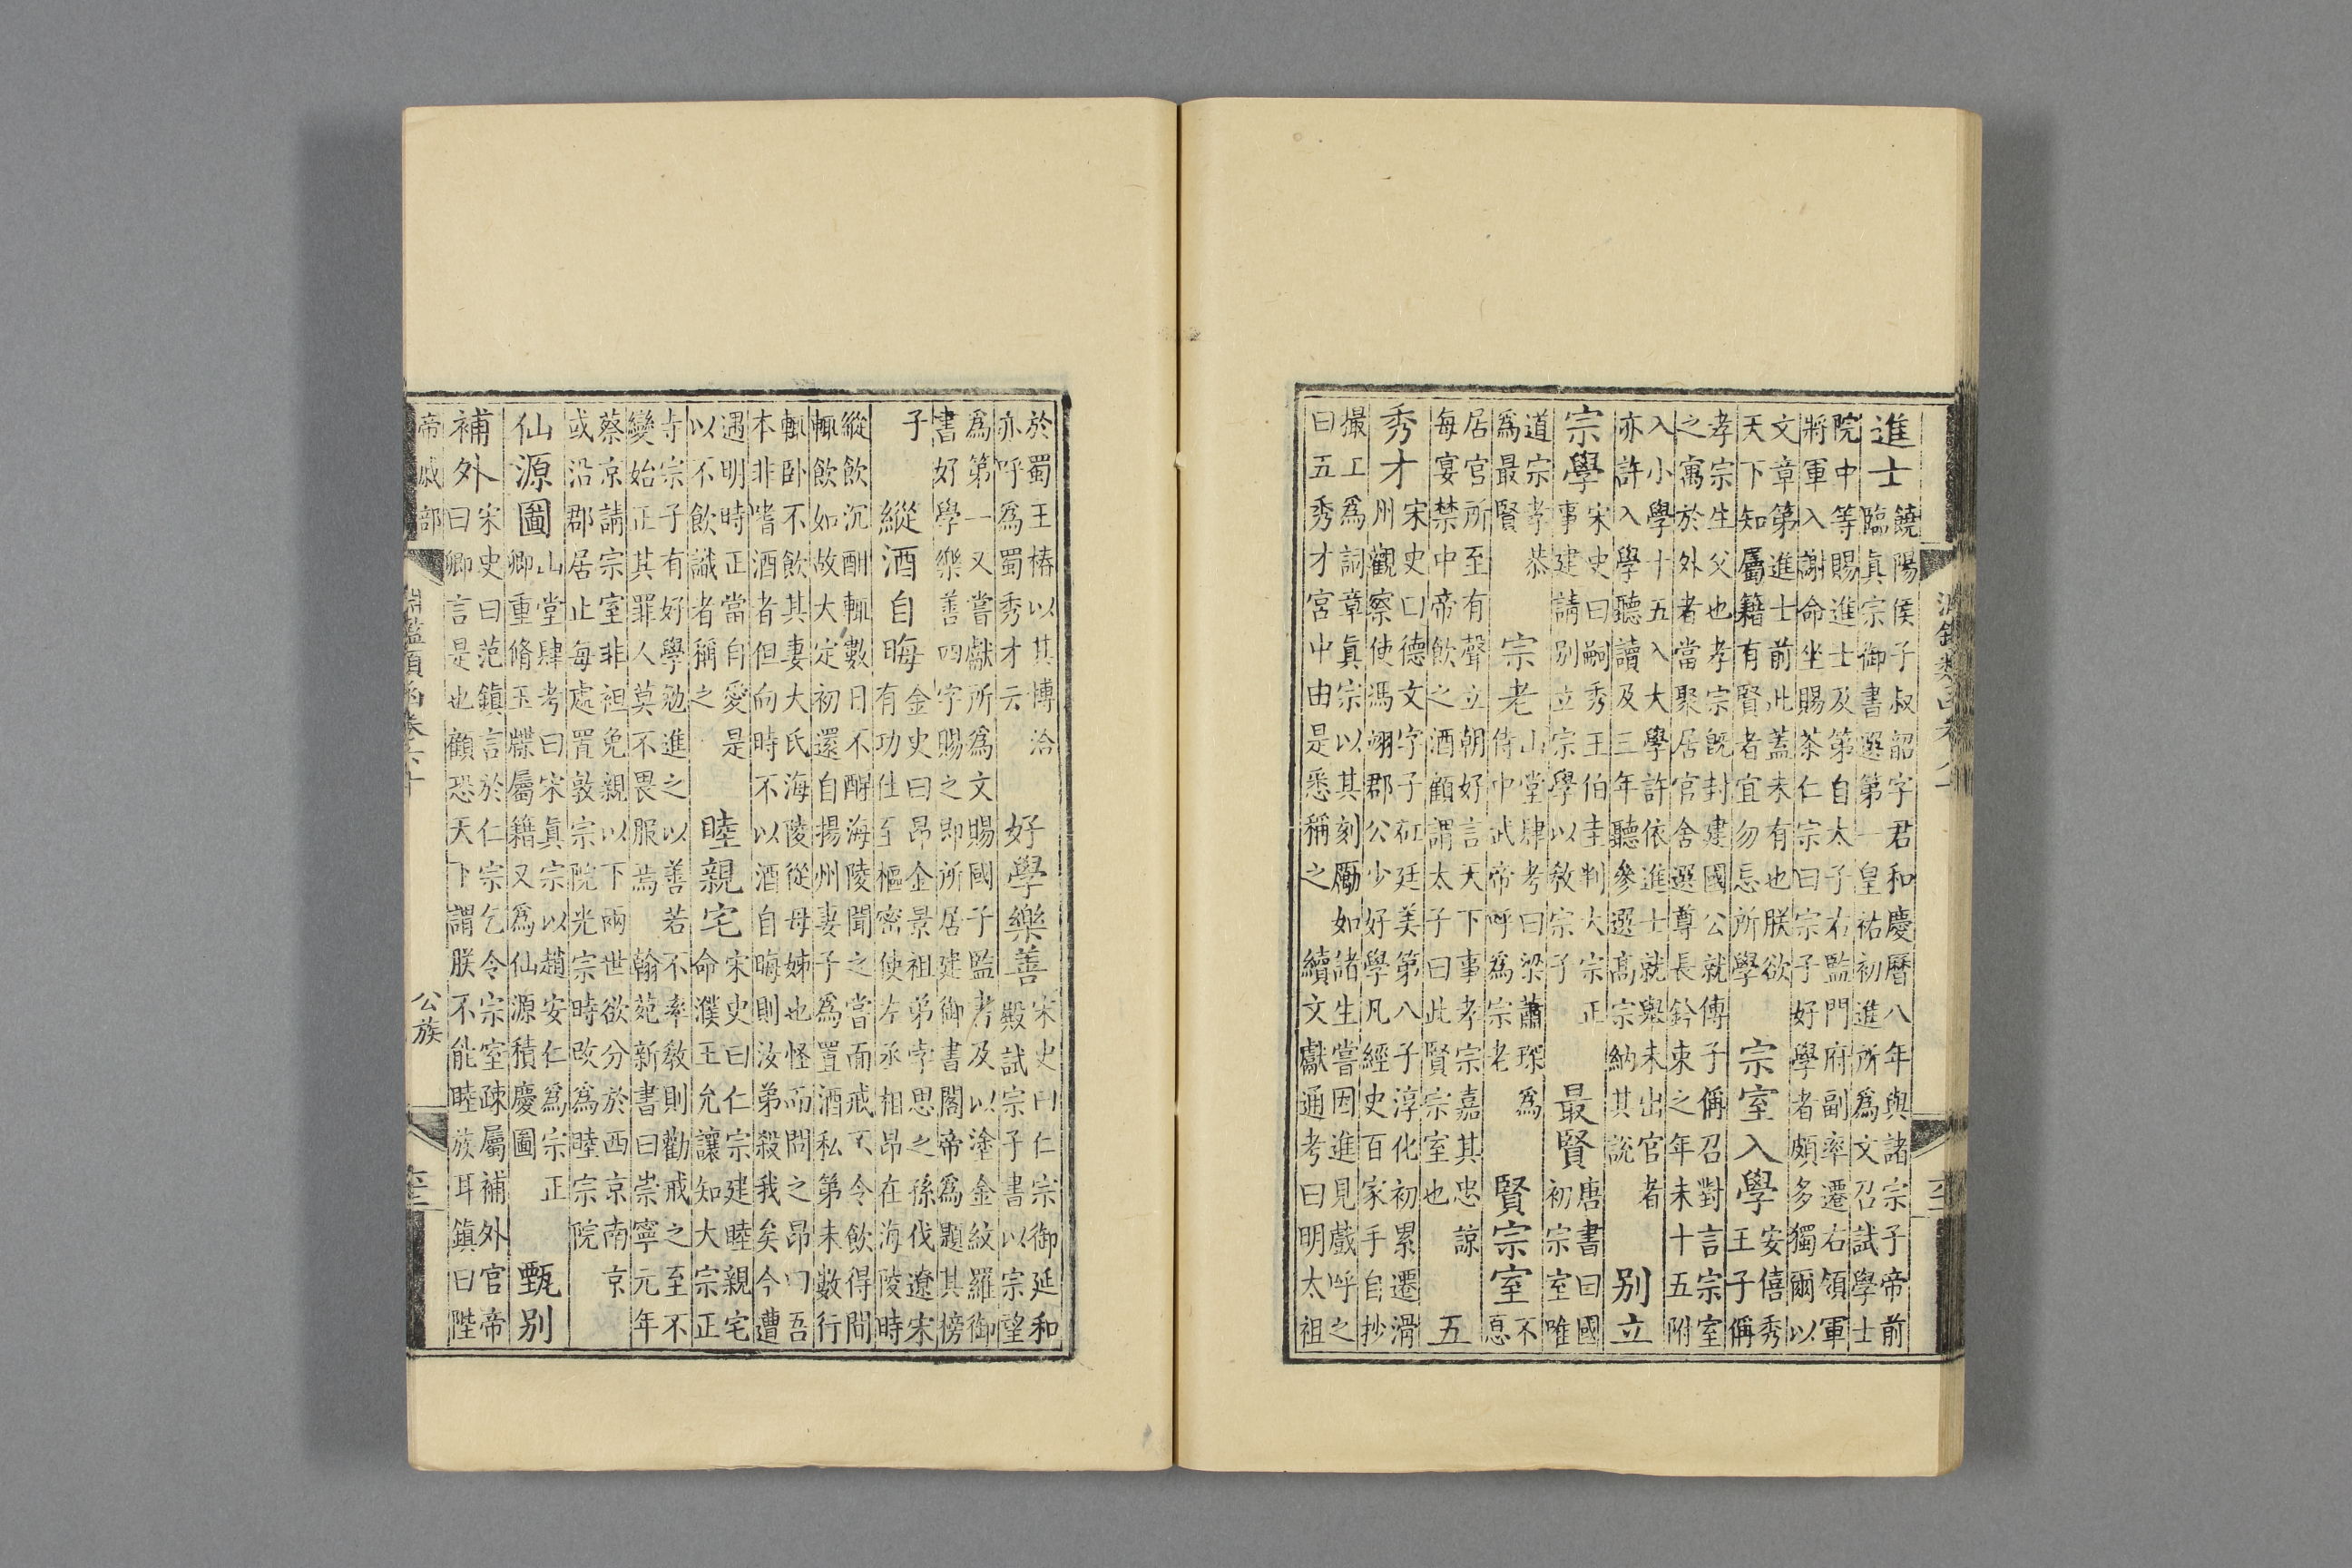 進士
饒陽侯子叔韶字君和慶曆八年與諸宗子帝前
臨眞宗御書選第一皇祐初進所爲文召試學士
院中等賜進士及第自太子右監門府副率遷右領軍
將軍入謝命坐賜茶仁宗曰宗子好學者頗多獨爾以
文章第進士前此蓋未有也朕欲
天下知屬籍有賢者宜勿忘所學
宗室入學
安僖秀
王子偁
孝宗生父也孝宗旣封建國公就傅子偁召對言宗室
之寓於外者當聚居官舍選尊長鈐束之年未十五附
入小學十五入大學許依進士就舉未出官者
亦許入學聽讀及三年聽參選高宗納其說
别立
宗學
宋史曰嗣秀王伯圭判大宗正
事建請别立宗學以敎宗子
最賢
唐書曰國
初宗室唯
道宗孝恭
爲最賢
宗老
山堂肆考曰梁蕭琛爲
侍中武帝呼爲宗老
賢宗室
不
惪
居官所至有聲立朝好言天下事孝宗嘉其忠諒
每宴禁中帝飲之酒顧謂太子曰此賢宗室也
五
秀才
宋史曰德文字子矼廷美第八子淳化初累遷滑
州觀察使馮翊郡公少好學凡經史百家手自抄
撮工爲詞章眞宗以其刻勵如諸生嘗因進見戲呼之
曰五秀才宮中由是悉稱之
續文獻通考曰明太祖
於蜀王椿以其博洽
亦呼爲蜀秀才云
好學樂善
宋史曰仁宗御延和
殿試宗子書以宗望
爲第一又嘗獻所爲文賜國子監書及以塗金紋羅御
書好學樂善四字賜之即所居建御書閣帝爲題其榜
子
縱酒自晦
金史曰昂金景祖弟孛思之孫伐遼宋
有功仕至樞密使左丞相昂在海陵時
縱飲沉酣輒數日不醒海陵聞之當面戒不令飲得間
輒飲如故大定初還自揚州妻子爲置酒私第未數行
輒卧不飲其妻大氏海陵從母姊也怪而問之昂曰吾
本非嗜酒者但向時不以酒自晦則汝弟殺我矣今遭
遇明時正當自愛是
以不飲識者稱之
睦親宅
宋史曰仁宗建睦親宅
命濮王允讓知大宗正
寺宗子有好學勉進之以善若不率敎則勸戒之至不
變始正其罪人莫不畏服焉
翰苑新書曰崇寧元年
蔡京請宗室非袒免親以下兩世欲分於西京南京
或沿郡居止每處置敦宗院光宗時改爲睦宗院
仙源圖
山堂肆考曰宋眞宗以趙安仁爲宗正
卿重脩玉牒屬籍又爲仙源積慶圖
甄别
補外
宋史曰范鎮言於仁宗乞令宗室疎屬補外官帝
曰卿言是也顧恐天下謂朕不能睦族耳鎮曰陛
帝戚部
公族